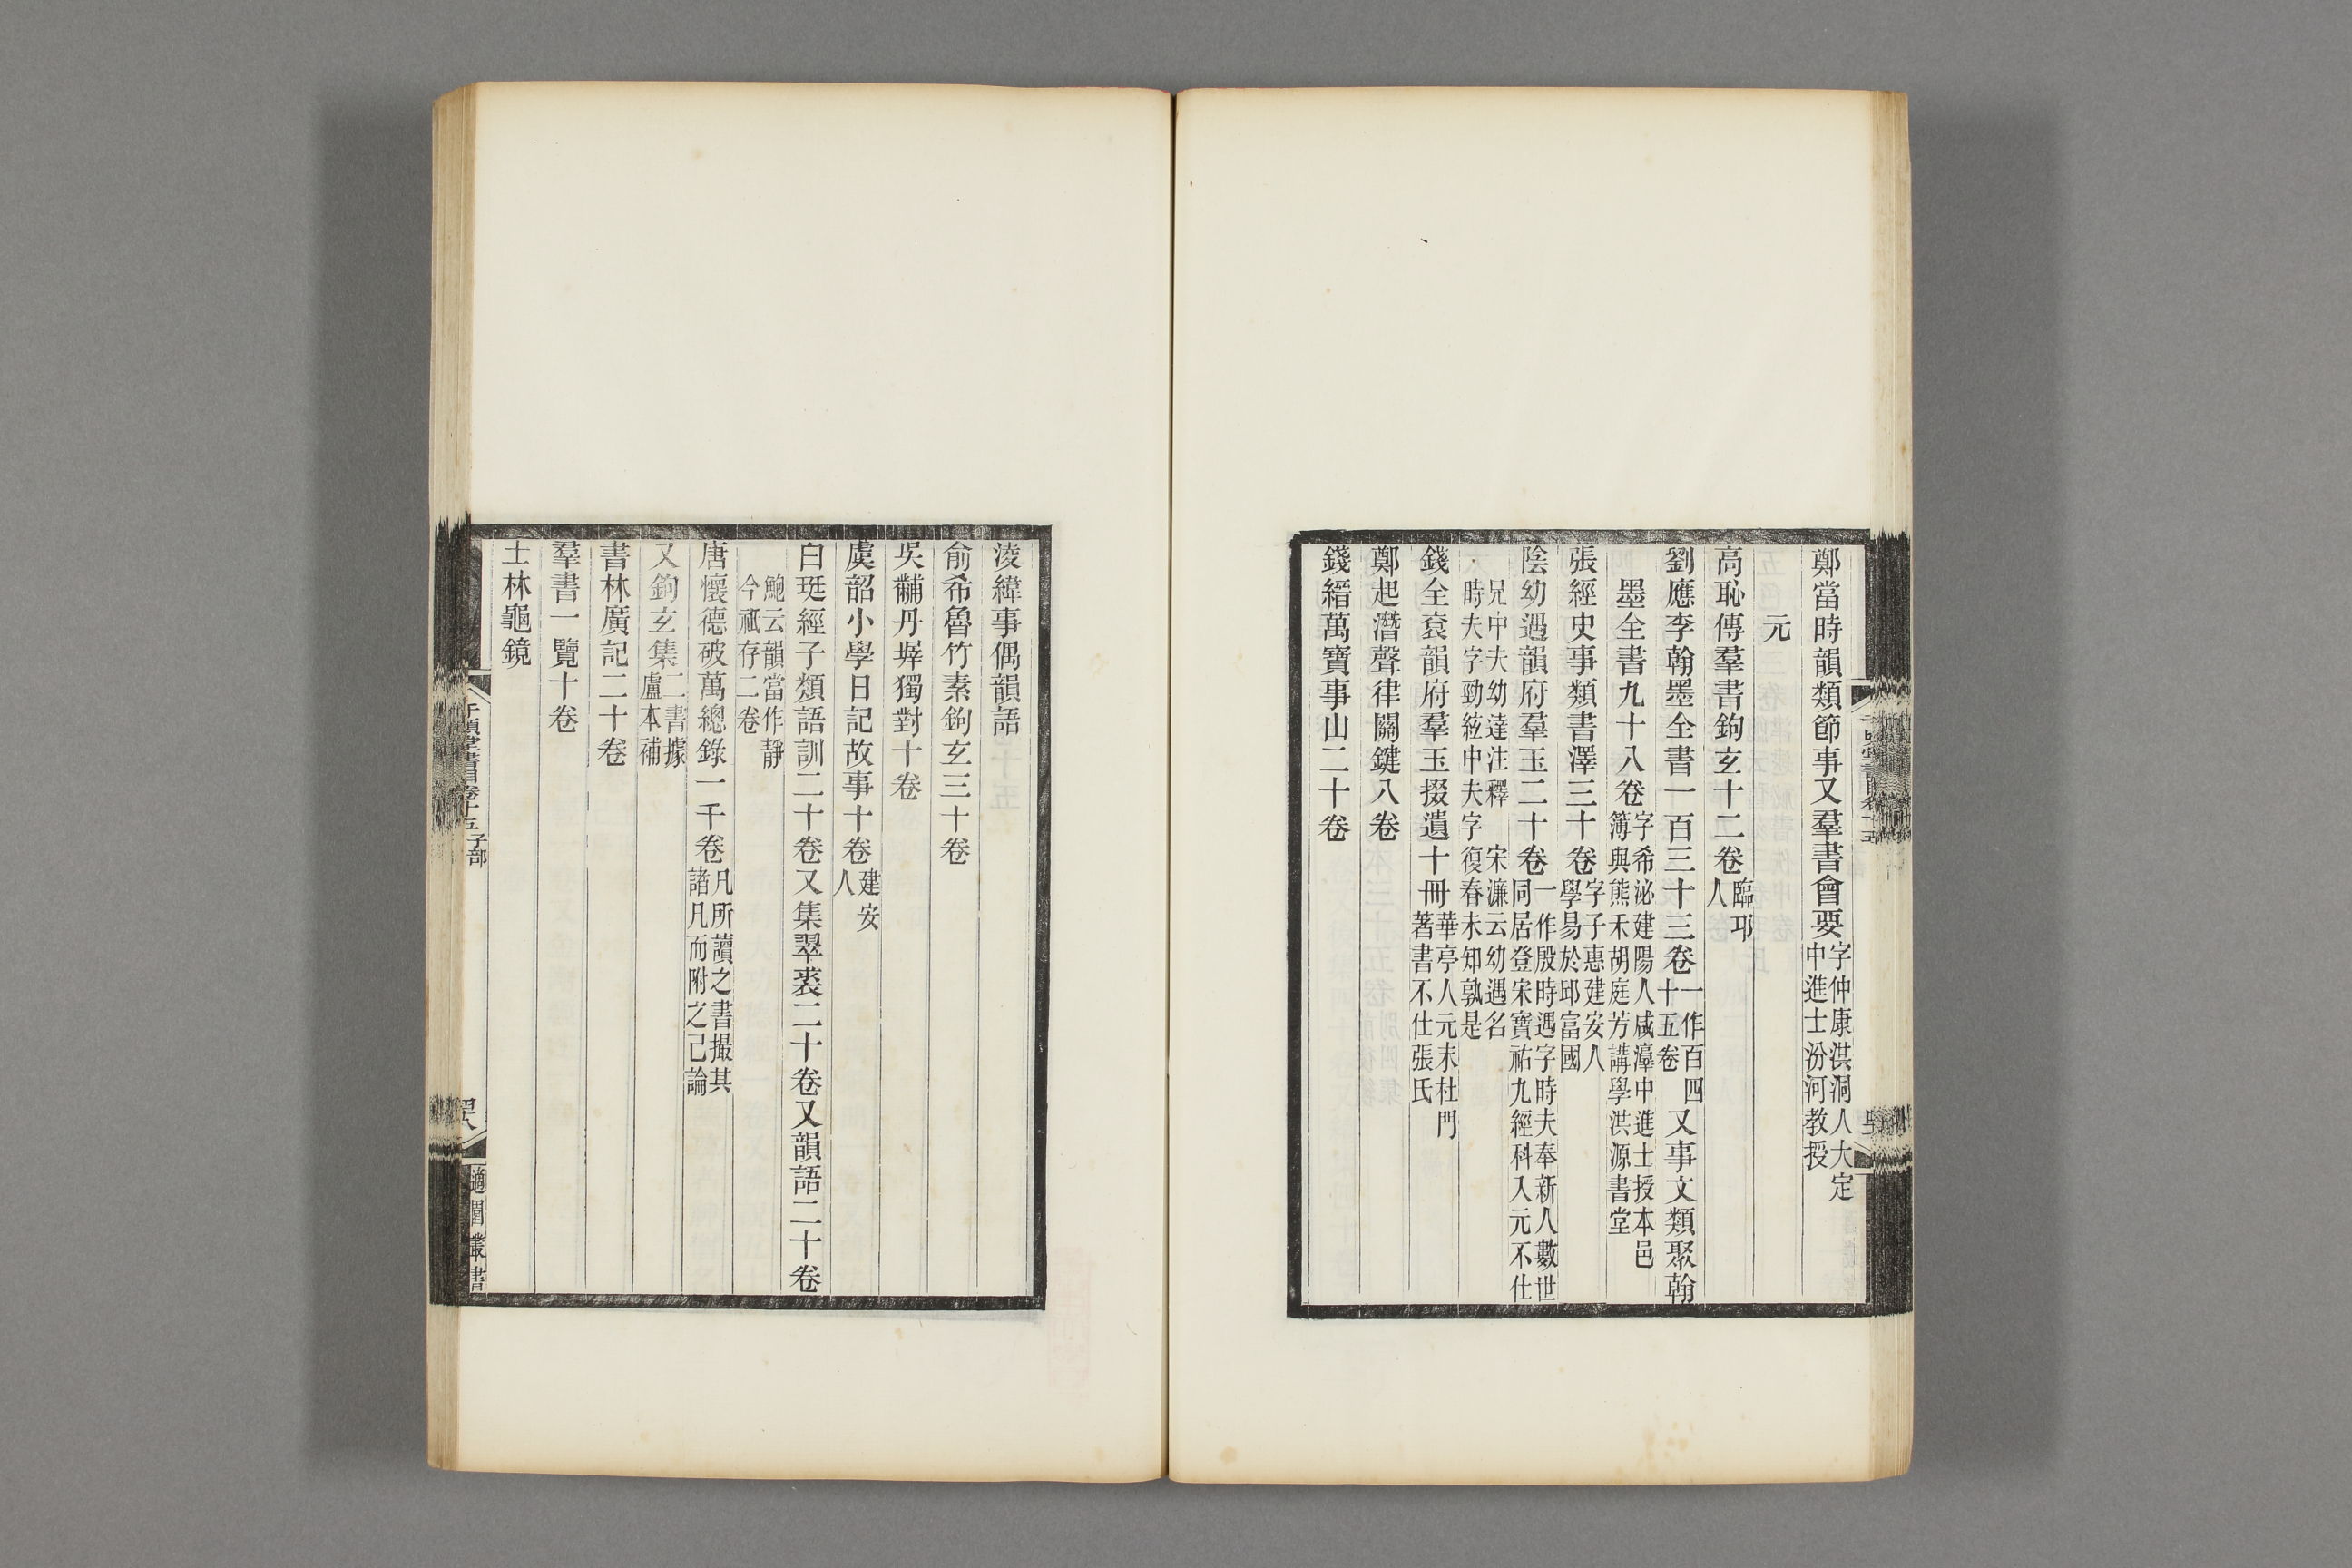 鄭當時韻類節事又羣書會要字仲康洪洞人大定中進士汾河教授
元
高恥傳羣書鉤玄十二卷臨邛人
劉應李翰墨全書一百三十三卷一作百四十五卷又事文類聚翰
墨全書九十八卷字希泌建陽人咸淳中進士授本邑簿與熊禾胡庭芳講學洪源書堂
張經史事類書澤三十卷字子惠建安人學易於邱富國
陰幼遇韻府羣玉二十卷一作殷時遇字時夫奉新人數世同居登宋寶祐九經科入元不仕
兄中夫幼達注釋　宋濂云幼遇名時夫字勁絃中夫字復春未知孰是
錢全袞韻府羣玉掇遺十冊華亭人元末杜門著書不仕張氏
鄭起潛聲律關鍵八卷
錢縉萬寶事山二十卷
淩緯事偶韻語
俞希魯竹素鉤玄三十卷
吳黼丹墀獨對十卷
虞韶小學日記故事十卷建安人
白珽經子類語訓二十卷又集翠裘二十卷又韻語二十卷
鮑云韻當作靜今祇存二卷
唐懷德破萬總錄一千卷凡所讀之書撮其諸凡而附之己論
又鉤玄集二書據盧本補
書林廣記二十卷
羣書一覽十卷
士林龜鏡
千頃堂書目卷十五子部
適園叢書